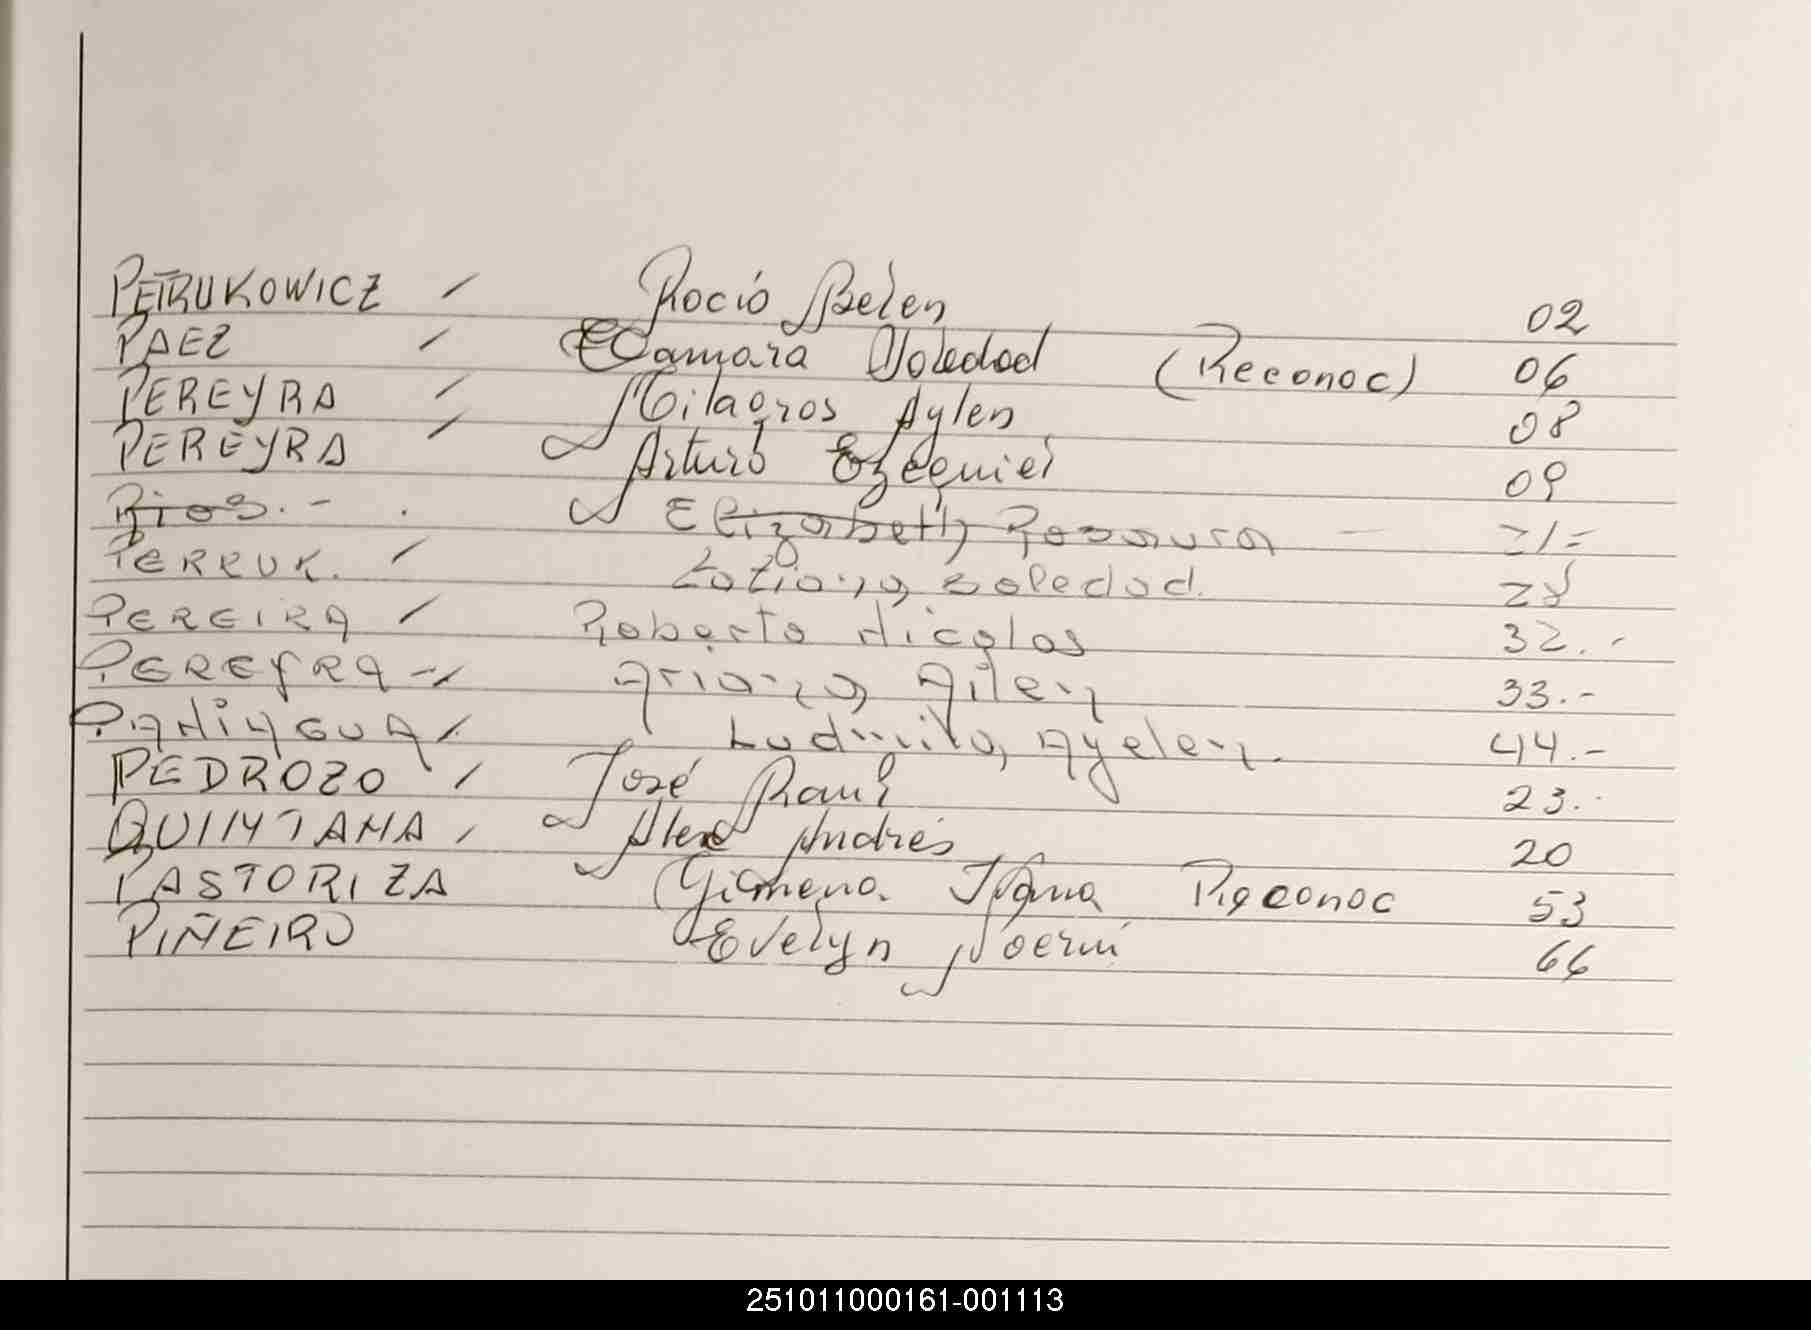 PETRUKOWICZ / Rocío Belen 02
PAEZ / Tamara Soledad (Reconoc) 06
PEREYRA / Milagros Aylen 08
PEREYRA / Arturo Ezequiel 09
Rios.- . Elizabeth Rosaura - 21=
PERRUK. / Tatiana Soledad. 28
PEREIRA / Roberto Nicolas 32.-
PEREYRA -/ Ariana Ailen 33.-
PANIAGUA /. Ludmila Ayelen. 44.-
PEDROZO / José Raul 23.-
QUINTANA / Alex Andrés 20
PASTORIZA Gimena Reconoc 53
PIÑEIRO Evelyn Noemí 66
251011000161-001113